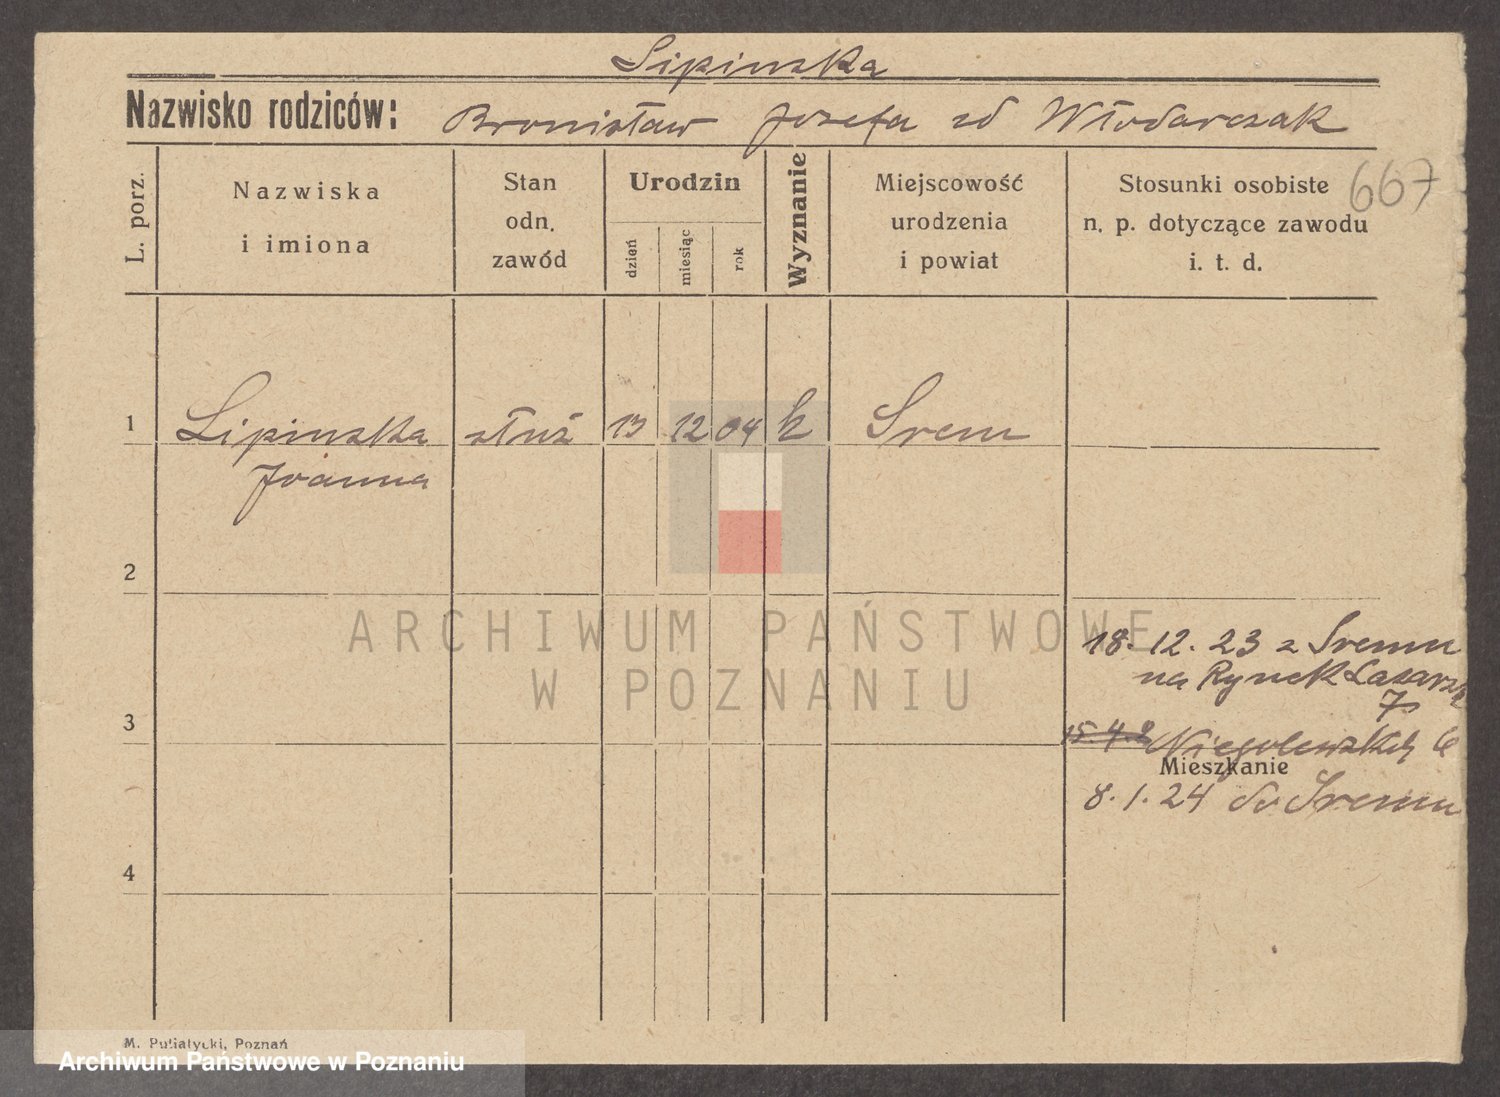 Lipinska
Nazwisko rodziców: Bronisław Jozefa zd Włodarczak
L. porz.
Nazwiska
i imiona
Stan
odn.
zawód
Urodzin
dzień
miesiąc
rok
Wyznanie
Miejscowość
urodzenia
i powiat
Stosunki osobiste
n. p. dotyczące zawodu
i. t. d.
667
1 Lipinska służ 13 12 04 k Srem
Joanna
2
ARCHIWUM PAŃSTWOWE
W POZNANIU
18. 12. 23 z Sremu
na Rynek Lazarski
7
3
15. 4. 2 Niegolewskich 6
Mieszkanie
8. 1. 24 do Sremu
4
M. Putiatycki, Poznań
Archiwum Państwowe w Poznaniu